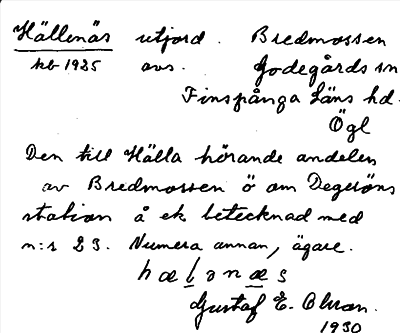 Hällenäs utjord. Bredmossen
kb 1925 avs. Godegårds sn
Finspånga Läns hd.
Ögl
Den till Hälla hörande andelen
av Bredmossen ö om Degeröns
station å ek betecknad med
n:r 23. Numera annan, ägare.
hælənæs
Gustaf E.
1930